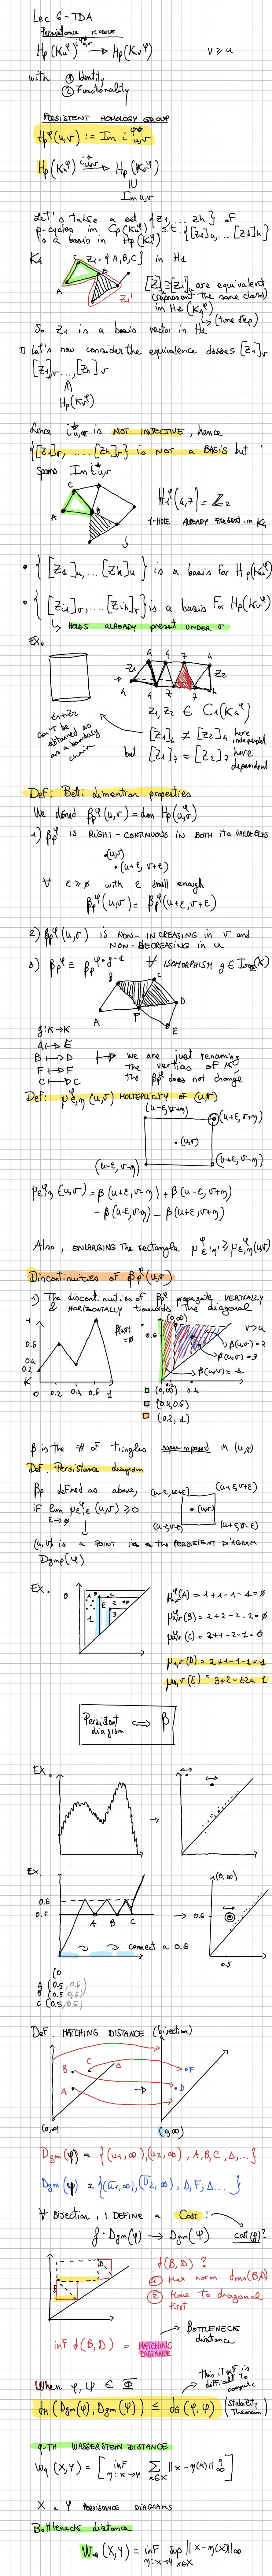 Lec 6 - TDA
Persistence module
Hp(Ku^φ) → Hp(Kv^φ) v ≥ u
with ① Identity
② Functionality
PERSISTENT HOMOLOGY GROUP
Hp^φ(u,v) := Im i^φ*u,v
Hp(Ku^φ) → Hp(Kv^φ)
Im u,v
Let's take a set {z1, ... zh} of
p-cycles in Cp(Ku^φ) s.t. {[z1]u, ... [zh]u}
is a basis in Hp(Ku^φ)
K4 z1 = {A,B,C} in H1
C
B
A
z1'
[z1]≅[z1'], are equivalent
(represent the same class)
in H1(K4^φ)
(time step)
So z1 is a basis vector in H1
Let's now consider the equivalence classes [z1]v
[z1]v, ..., [zh]v
Hp(Kv^φ)
Since i*u,v is NOT INJECTIVE, hence
{[z1]v, ... [zh]v} is NOT A BASIS but
spans Im i*u,v
C
A
B
H1^φ(4,7) = Z2
1-HOLE ALREADY PRESENT in K4
• {[z1]u, ... [zh]u} is a basis for Hp(Ku^φ)
• {[zi1]v, ... [zih]v} is a basis for Hp(Kv^φ)
↳ HOLES ALREADY PRESENT UNDER v
Ex.
z1 z2
z1+z2
can't be
obtained as
a boundary
chain
z1, z2 ∈ C1(K4^φ)
[z1]4 ≠ [z2]4 here
independent
but [z1]7 = [z2]7 here
dependent
Def: Betti dimention properties
We defined βp^φ(u,v) = dim Hp^φ(u,v)
1) βp^φ is RIGHT-CONTINUOUS in BOTH its VARIABLES
•(u,v)
•(u+ε, v+ε)
∀ ε ≥ 0 with ε small enough
βp^φ(u,v) = βp^φ(u+ε, v+ε)
2) βp^φ(u,v) is NON-INCREASING in v and
NON-DECREASING in u
3) βp^φ ≡ βp^φ∘g^-1 ∀ ISOMORPHISM g ∈ Iso(K)
B C
A F D
E
g: K→K
A ↦ E
B ↦ D
F ↦ F
C ↦ C
we are just renaming
the vertices of K
the βp^φ does not change
Def: μ^φε,η(u,v) MOLTEPLICITY OF (u,v)
(u-ε, v+η) (u+ε, v+η)
•(u,v)
(u-ε, v-η) (u+ε, v-η)
μ^φε,η(u,v) = β(u+ε, v-η) + β(u-ε, v+η)
- β(u-ε, v-η) - β(u+ε, v+η)
Also, ENLARGING THE rectangle μ^φε',η' ≥ μ^φε,η(u,v)
Discontinuities of βp^φ(u,v)
1) The discontinuities of βp^φ propagate VERTICALLY
& HORIZONTALLY towards the diagonal
1
0.6
0.4
0.2
K 0 0.2 0.4 0.6 1
β(u,v)
=0
0.6
(0,∞)
v>u
β(u,v)=2
β(u,v)=3
β(u,v)=1
0.2 0.4
(0,∞)
(0.4,0.6)
(0.2, 1)
β is the # of triangles superimposed in (u,v)
Def. Persistence diagram
βp defined as above,
if lim μ^φε,ε(u,v) ≥ 0
ε→0
(u-ε, v+ε) (u+ε, v+ε)
•(u,v)
(u-ε, v-ε) (u+ε, v-ε)
(u,v) is a POINT in the PERSISTENT DIAGRAM
Dgmp(φ)
Ex.
μ^φu,v(A) = 1+1-1-1 = 0
μ^φu,v(B) = 2+2-2-2 = 0
μ^φu,v(C) = 2+1-2-1 = 0
μu,v(D) = 2+1-1-1 = 1
μu,v(E) = 3+2-2-2 = 1
Persistent
diagram ⟺ β
Ex.
Ex.
0.6
0.5
A B C
connect a 0.6
(0,∞)
0.6
0.5
A (0.5, 0.6)
B (0.5, 0.6)
C (0.5, 0.6)
Def. MATCHING DISTANCE (bijection)
B C Δ
A
•F
•D
(0,∞) (0,∞)
Dgm(φ) = {(u1,∞),(u2,∞), A,B,C,Δ,...}
Dgm(ψ) = {(u1,∞),(u2,∞), D,F,Δ...}
∀ Bijection, I DEFINE a Cost:
f: Dgm(φ) → Dgm(ψ) cost(f)?
D
B
d(B,D)?
① Max norm
② Move to diagonal
first
BOTTLENECK
distance
inf d(B,D) = MATCHING
DISTANCE
When φ, ψ ∈ Φ
this itself is
difficult to
compute
dM(Dgm(φ), Dgm(ψ)) ≤ dG(φ,ψ) (Stability
Theorem)
q-TH WASSERSTEIN DISTANCE
Wq(X,Y) = [inf η:X→Y Σ x∈X ||x-η(x)||∞^q]
X, Y PERSISTANCE DIAGRAMS
Bottleneck distance
W∞(X,Y) = inf η:X→Y sup x∈X ||x-η(x)||∞